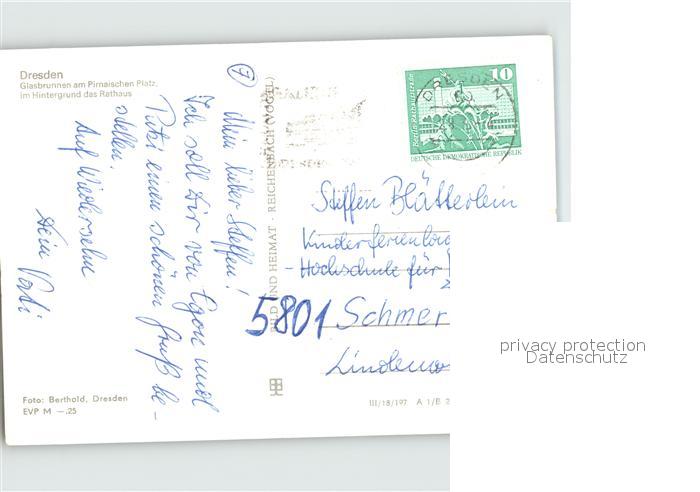 Dresden
Glasbrunnen am Pirnaischen Platz,
im Hintergrund das Rathaus
7
Mein lieber Steffen!
Ich soll Dir von Egon und
Putzi einen schönen Gruß be-
stellen.
Auf Wiedersehn
Dein Vati
Foto: Berthold, Dresden
EVP M —.25
BILD UND HEIMAT · REICHENBACH (VOGTL)
III/18/197 A 1/B 2
10
Berlin · Rathausstraße
DEUTSCHE DEMOKRATISCHE REPUBLIK
DRESDEN
Steffen Blätterlein
Kinderferienlag
- Hochschule für
5801 Schmer
privacy protection
Datenschutz